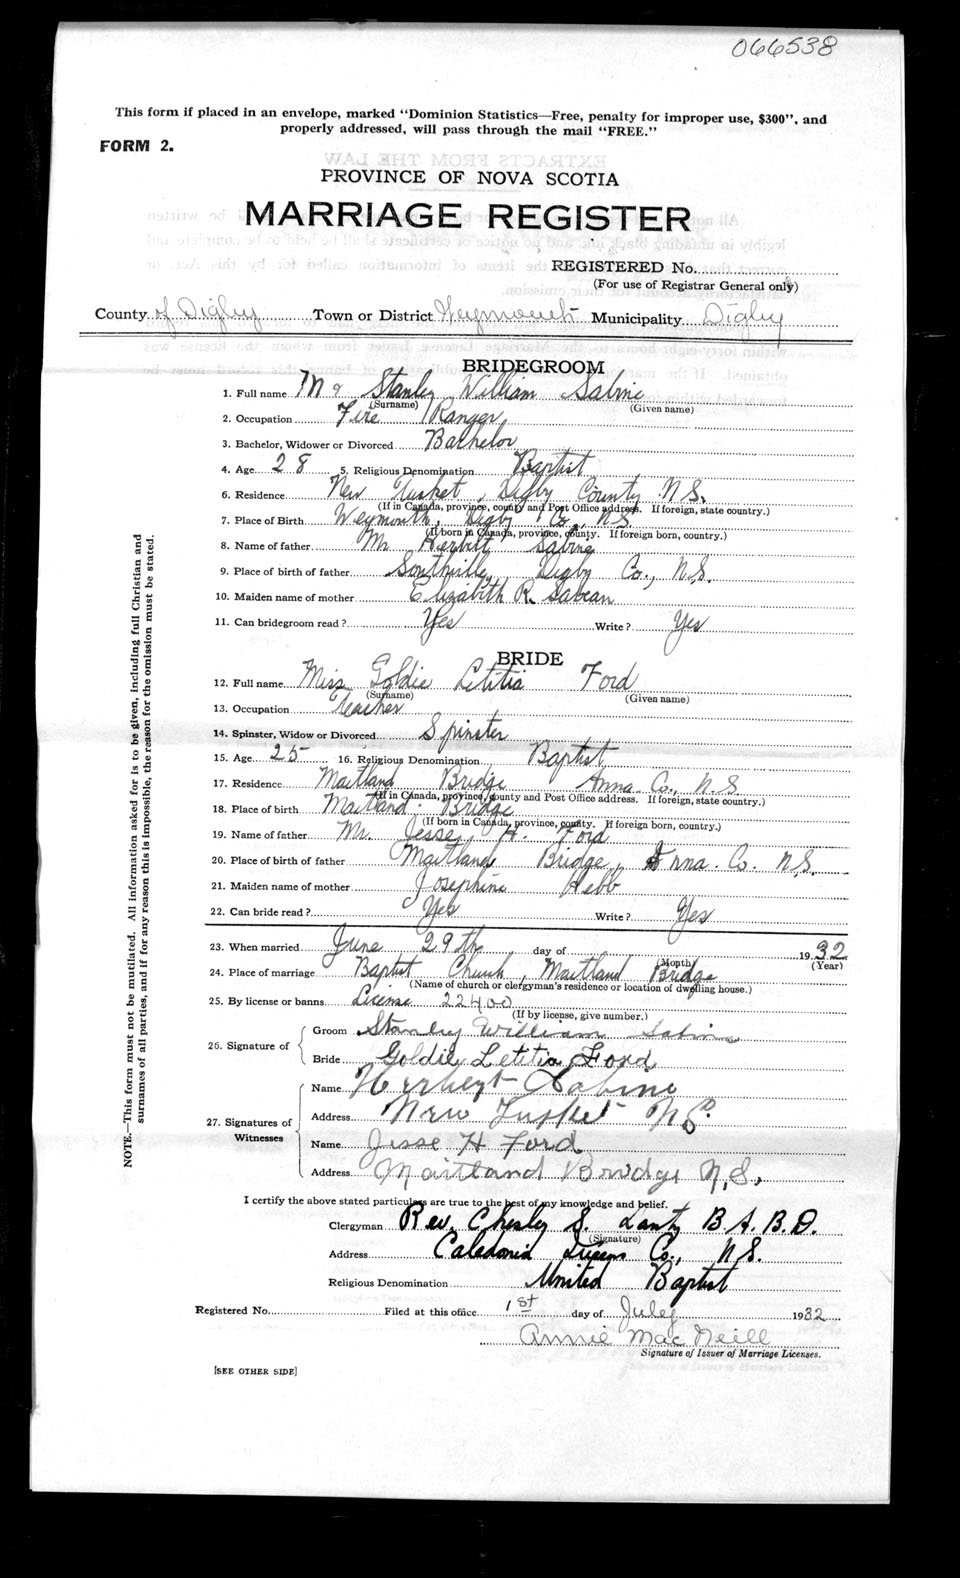 066538
This form if placed in an envelope, marked "Dominion Statistics—Free, penalty for improper use, $300", and
properly addressed, will pass through the mail "FREE."
FORM 2.
PROVINCE OF NOVA SCOTIA
MARRIAGE REGISTER
REGISTERED No.
(For use of Registrar General only)
County of Digby Town or District Weymouth Municipality Digby
BRIDEGROOM
1. Full name Mr Stanley William Sabine
(Surname) (Given name)
2. Occupation Fire Ranger
3. Bachelor, Widower or Divorced Bachelor
4. Age 28 5. Religious Denomination Baptist
6. Residence New Tusket, Digby County N.S.
(If in Canada, province, county and Post Office address. If foreign, state country.)
7. Place of Birth Weymouth, Digby Co., N.S.
(If born in Canada, province, county. If foreign born, country.)
8. Name of father Mr. Herbert Sabine
9. Place of birth of father Southville, Digby Co., N.S.
10. Maiden name of mother Elizabeth R. Sabean
11. Can bridegroom read? Yes Write? Yes
BRIDE
12. Full name Miss Goldie Letitia Ford
(Surname) (Given name)
13. Occupation Teacher
14. Spinster, Widow or Divorced Spinster
15. Age 25 16. Religious Denomination Baptist
17. Residence Maitland Bridge Anna. Co., N.S.
(If in Canada, province, county and Post Office address. If foreign, state country.)
18. Place of birth Maitland Bridge
(If born in Canada, province, county. If foreign born, country.)
19. Name of father Mr. Jesse H. Ford
20. Place of birth of father Maitland Bridge, Anna. Co. N.S.
21. Maiden name of mother Josephine Hebb
22. Can bride read? Yes Write? Yes
23. When married June 29th day of 1932
(Month) (Year)
24. Place of marriage Baptist Church, Maitland Bridge
(Name of church or clergyman's residence or location of dwelling house.)
25. By license or banns License 22400
(If by license, give number.)
26. Signature of
Groom Stanley William Sabine
Bride Goldie Letitia Ford
27. Signatures of Witnesses
Name Herbert Sabine
Address New Tusket N.S.
Name Jesse H Ford
Address Maitland Bridge N.S.
I certify the above stated particulars are true to the best of my knowledge and belief.
Clergyman Rev. Chesley S. Lantz B.A. B.D.
(Signature)
Address Caledonia Queens Co., N.S.
Religious Denomination United Baptist
Registered No. Filed at this office 1st day of July 1932
Annie MacNeill
Signature of Issuer of Marriage Licenses.
[SEE OTHER SIDE]
NOTE.—This form must not be mutilated. All information asked for is to be given, including full Christian and
surnames of all parties, and if for any reason this is impossible, the reason for the omission must be stated.